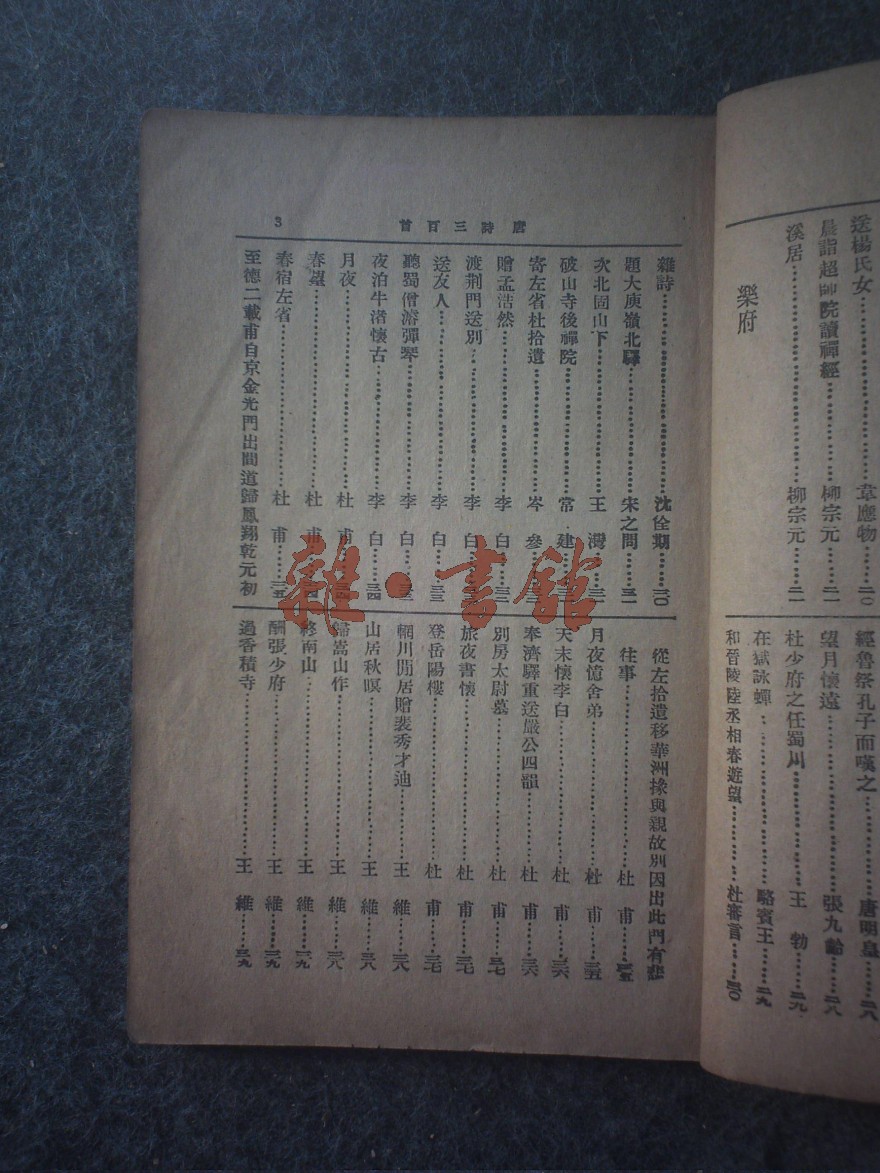 送楊氏女……韋應物……二〇
晨詣超師院讀禪經……柳宗元……二一
溪居……柳宗元……二一
樂府
經魯祭孔子而嘆之……唐明皇……二八
望月懷遠……張九齡……二八
杜少府之任蜀川……王勃……二九
在獄詠蟬……駱賓王……二九
和晉陵陸丞相春遊望……杜審言……三〇
唐詩三百首
3
雜詩……沈佺期……三〇
題大庾嶺北驛……宋之問……三一
次北固山下……王灣
破山寺後禪院……常建
寄左省杜拾遺……岑參
贈孟浩然……李白
渡荆門送別……李白
送友人……李白……三三
聽蜀僧濬彈琴……李白
夜泊牛渚懷古……李白……三四
月夜……杜甫
春望……杜甫
春宿左省……杜甫……三五
至德二載甫自京金光門出間道歸鳳翔乾元初
從左拾遺移華洲掾與親故別因出此門有悲
往事……杜甫……三五
月夜憶舍弟……杜甫……三五
天末懷李白……杜甫……三六
奉濟驛重送嚴公四韻……杜甫……三六
別房太尉墓……杜甫……三七
旅夜書懷……杜甫……三七
登岳陽樓……杜甫……三七
輞川閒居贈裴秀才迪……王維……三八
山居秋暝……王維……三八
歸嵩山作……王維……三八
終南山……王維……三九
酬張少府……王維……三九
過香積寺……王維……三九
雜·書館